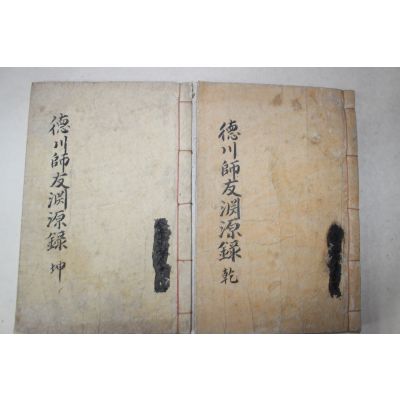 德川師友淵源録 乾
德川師友淵源録 坤